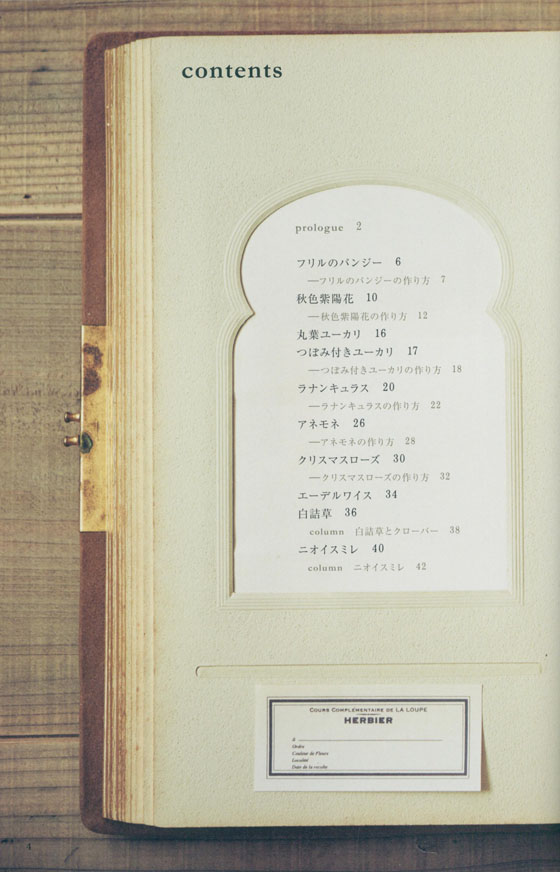 contents
prologue 2
フリルのパンジー 6
―フリルのパンジーの作り方 7
秋色紫陽花 10
―秋色紫陽花の作り方 12
丸葉ユーカリ 16
つぼみ付きユーカリ 17
―つぼみ付きユーカリの作り方 18
ラナンキュラス 20
―ラナンキュラスの作り方 22
アネモネ 26
―アネモネの作り方 28
クリスマスローズ 30
―クリスマスローズの作り方 32
エーデルワイス 34
白詰草 36
column 白詰草とクローバー 38
ニオイスミレ 40
column ニオイスミレ 42
COURS COMPLÉMENTAIRE DE LA LOUPE
HERBIER
Ordre
Couleur de Fleurs
Localité
Date de la récolte
4